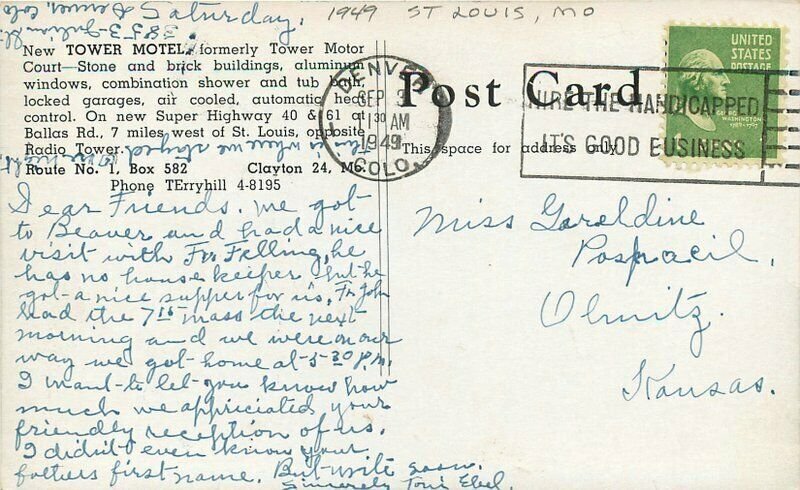 1949 ST LOUIS, MO
Saturday.
Denver, Colo
New TOWER MOTEL, formerly Tower Motor
Court—Stone and brick buildings, aluminum
windows, combination shower and tub bath,
locked garages, air cooled, automatic heat
control. On new Super Highway 40 & 61 at
Ballas Rd., 7 miles west of St. Louis, opposite
Radio Tower.
This is where we stayed one night.
Route No. 1, Box 582 Clayton 24, Mo.
Phone TErryhill 4-8195
Dear Friends. We got
to Beaver and had a nice
visit with Fr Felling, he
has no house keeper but he
got a nice supper for us. Fr John
had the 7 15 mass the next
morning and we were on our
way we got home at 5-30 P.M.
I want to let you know how
much we appreciated your
friendly reception of us.
I didn't even know your
fathers first name. But write soon.
Sincerely Toni Ebel.
Post Card
This space for address only
DENVER
SEP 3
1 30 AM
1949
COLO.
HIRE THE HANDICAPPED
IT'S GOOD BUSINESS
UNITED
STATES
POSTAGE
WASHINGTON
1789-1797
1¢
Miss Gereldine
Pospacil.
Olmitz.
Kansas.